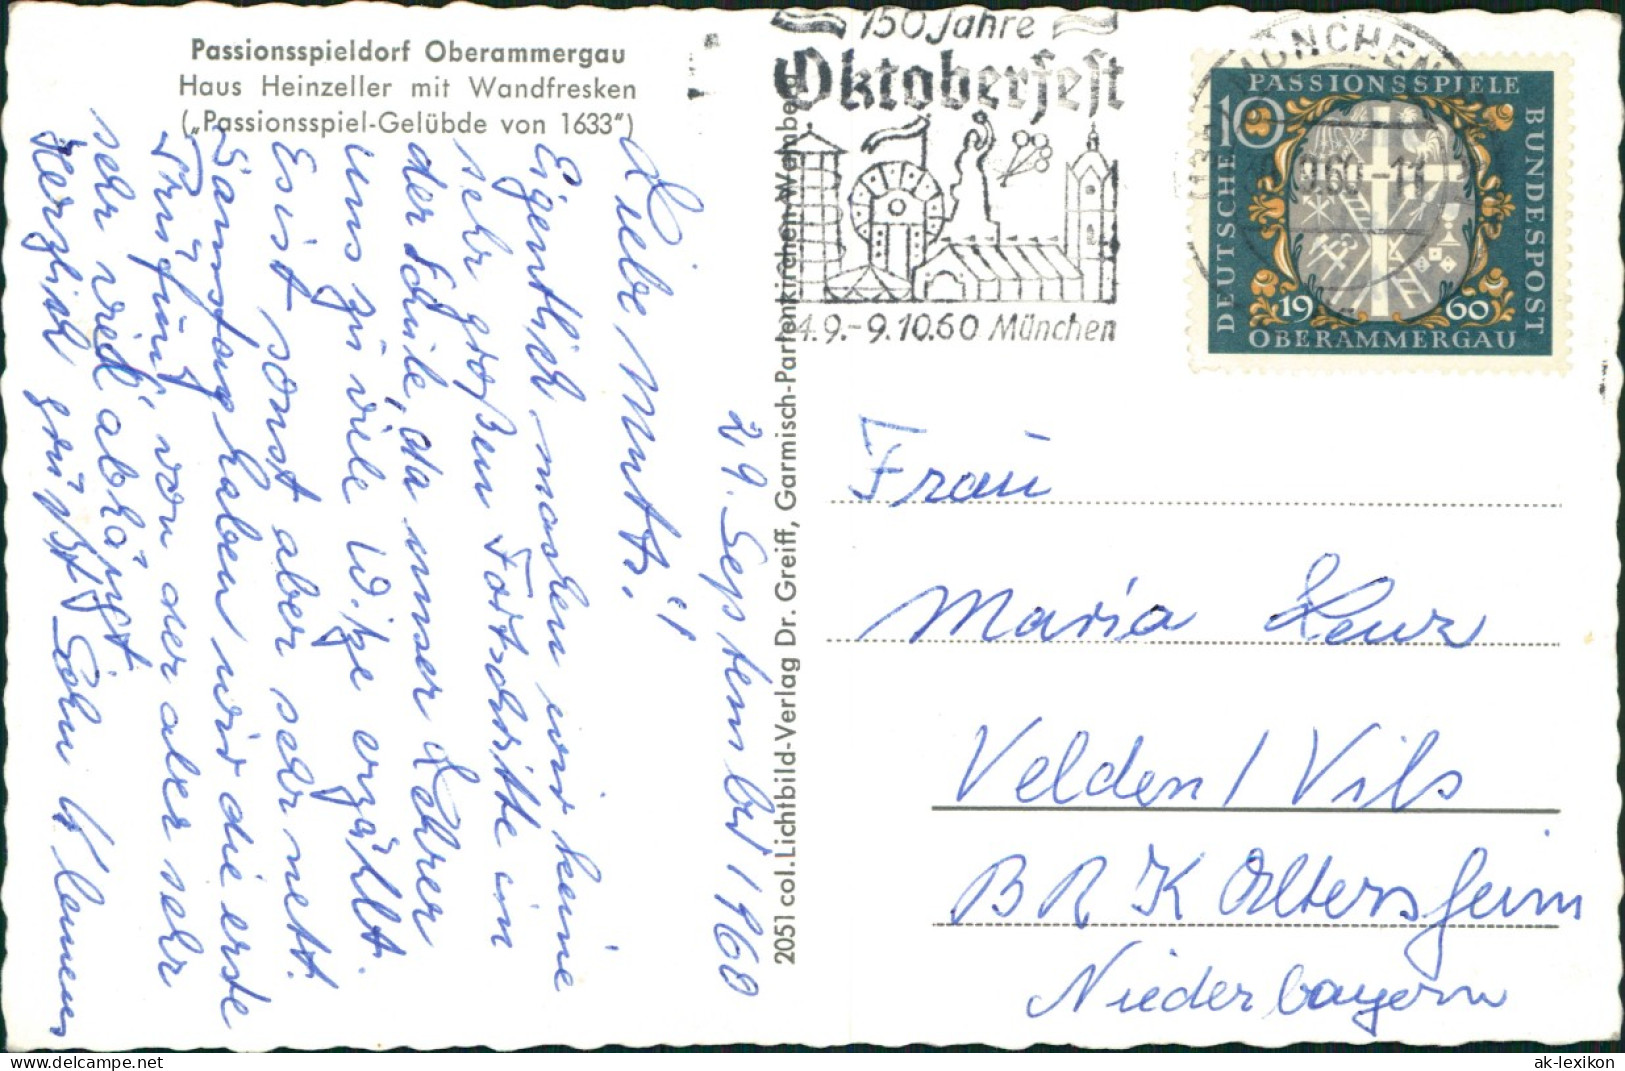 Passionsspieldorf Oberammergau
Haus Heinzeller mit Wandfresken
(„Passionsspiel-Gelübde von 1633")
29. September 1960
Liebe Mutti!
Eigentlich machen wir keine
sehr großen Fortschritte in
der Schule, da unser Lehrer
uns zu viele Witze erzählt.
Es ist sonst aber sehr nett.
Samstag haben wir die erste
Prüfung, von der aber sehr
sehr viel abhängt
Herzlich grüßt Sohn Klemens
2051 col. Lichtbild-Verlag Dr. Greiff, Garmisch-Partenkirchen-Wamberg
150 Jahre
Oktoberfest
4.9.-9.10.60 München
MÜNCHEN
9.60-11
PASSIONSSPIELE
10
DEUTSCHE
BUNDESPOST
1960
OBERAMMERGAU
Frau
Maria Lenz
Velden / Vils
BRK Altersheim
Niederbayern
ak-lexikon